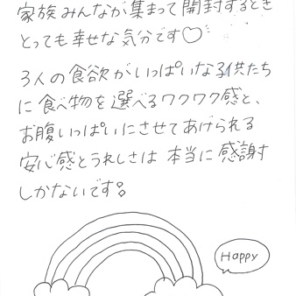 家族みんなが集まって開封するとき
とっても幸せな気分です♡
3人の食欲がいっぱいな子供たち
に食べ物を選べるワクワク感と、
お腹いっぱいにさせてあげられる
安心感とうれしさは本当に感謝
しかないです。
Happy